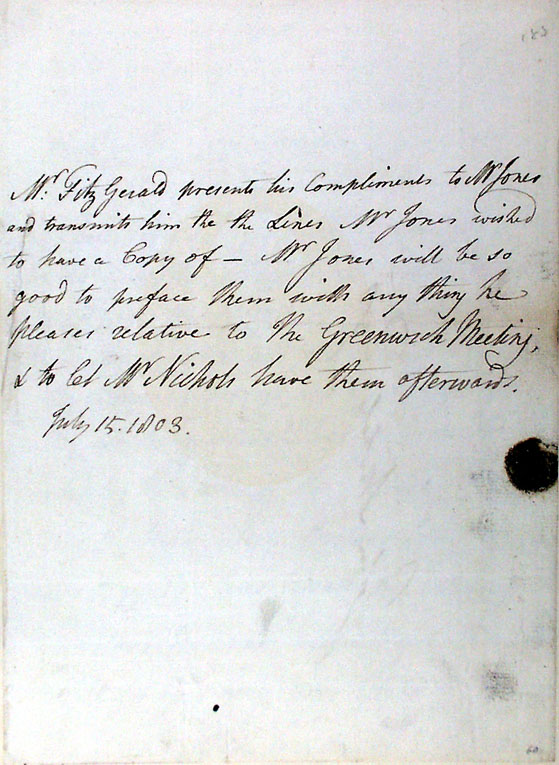 Mr. Fitz Gerald presents his Compliments to Mr Jones
and transmits him the the Lines Mr Jones wished
to have a Copy of — Mr Jones will be so
good to preface them with any thing he
pleases relative to the Greenwich Meeting,
& to let Mr Nichols have them afterwards.
July 15. 1803.
60